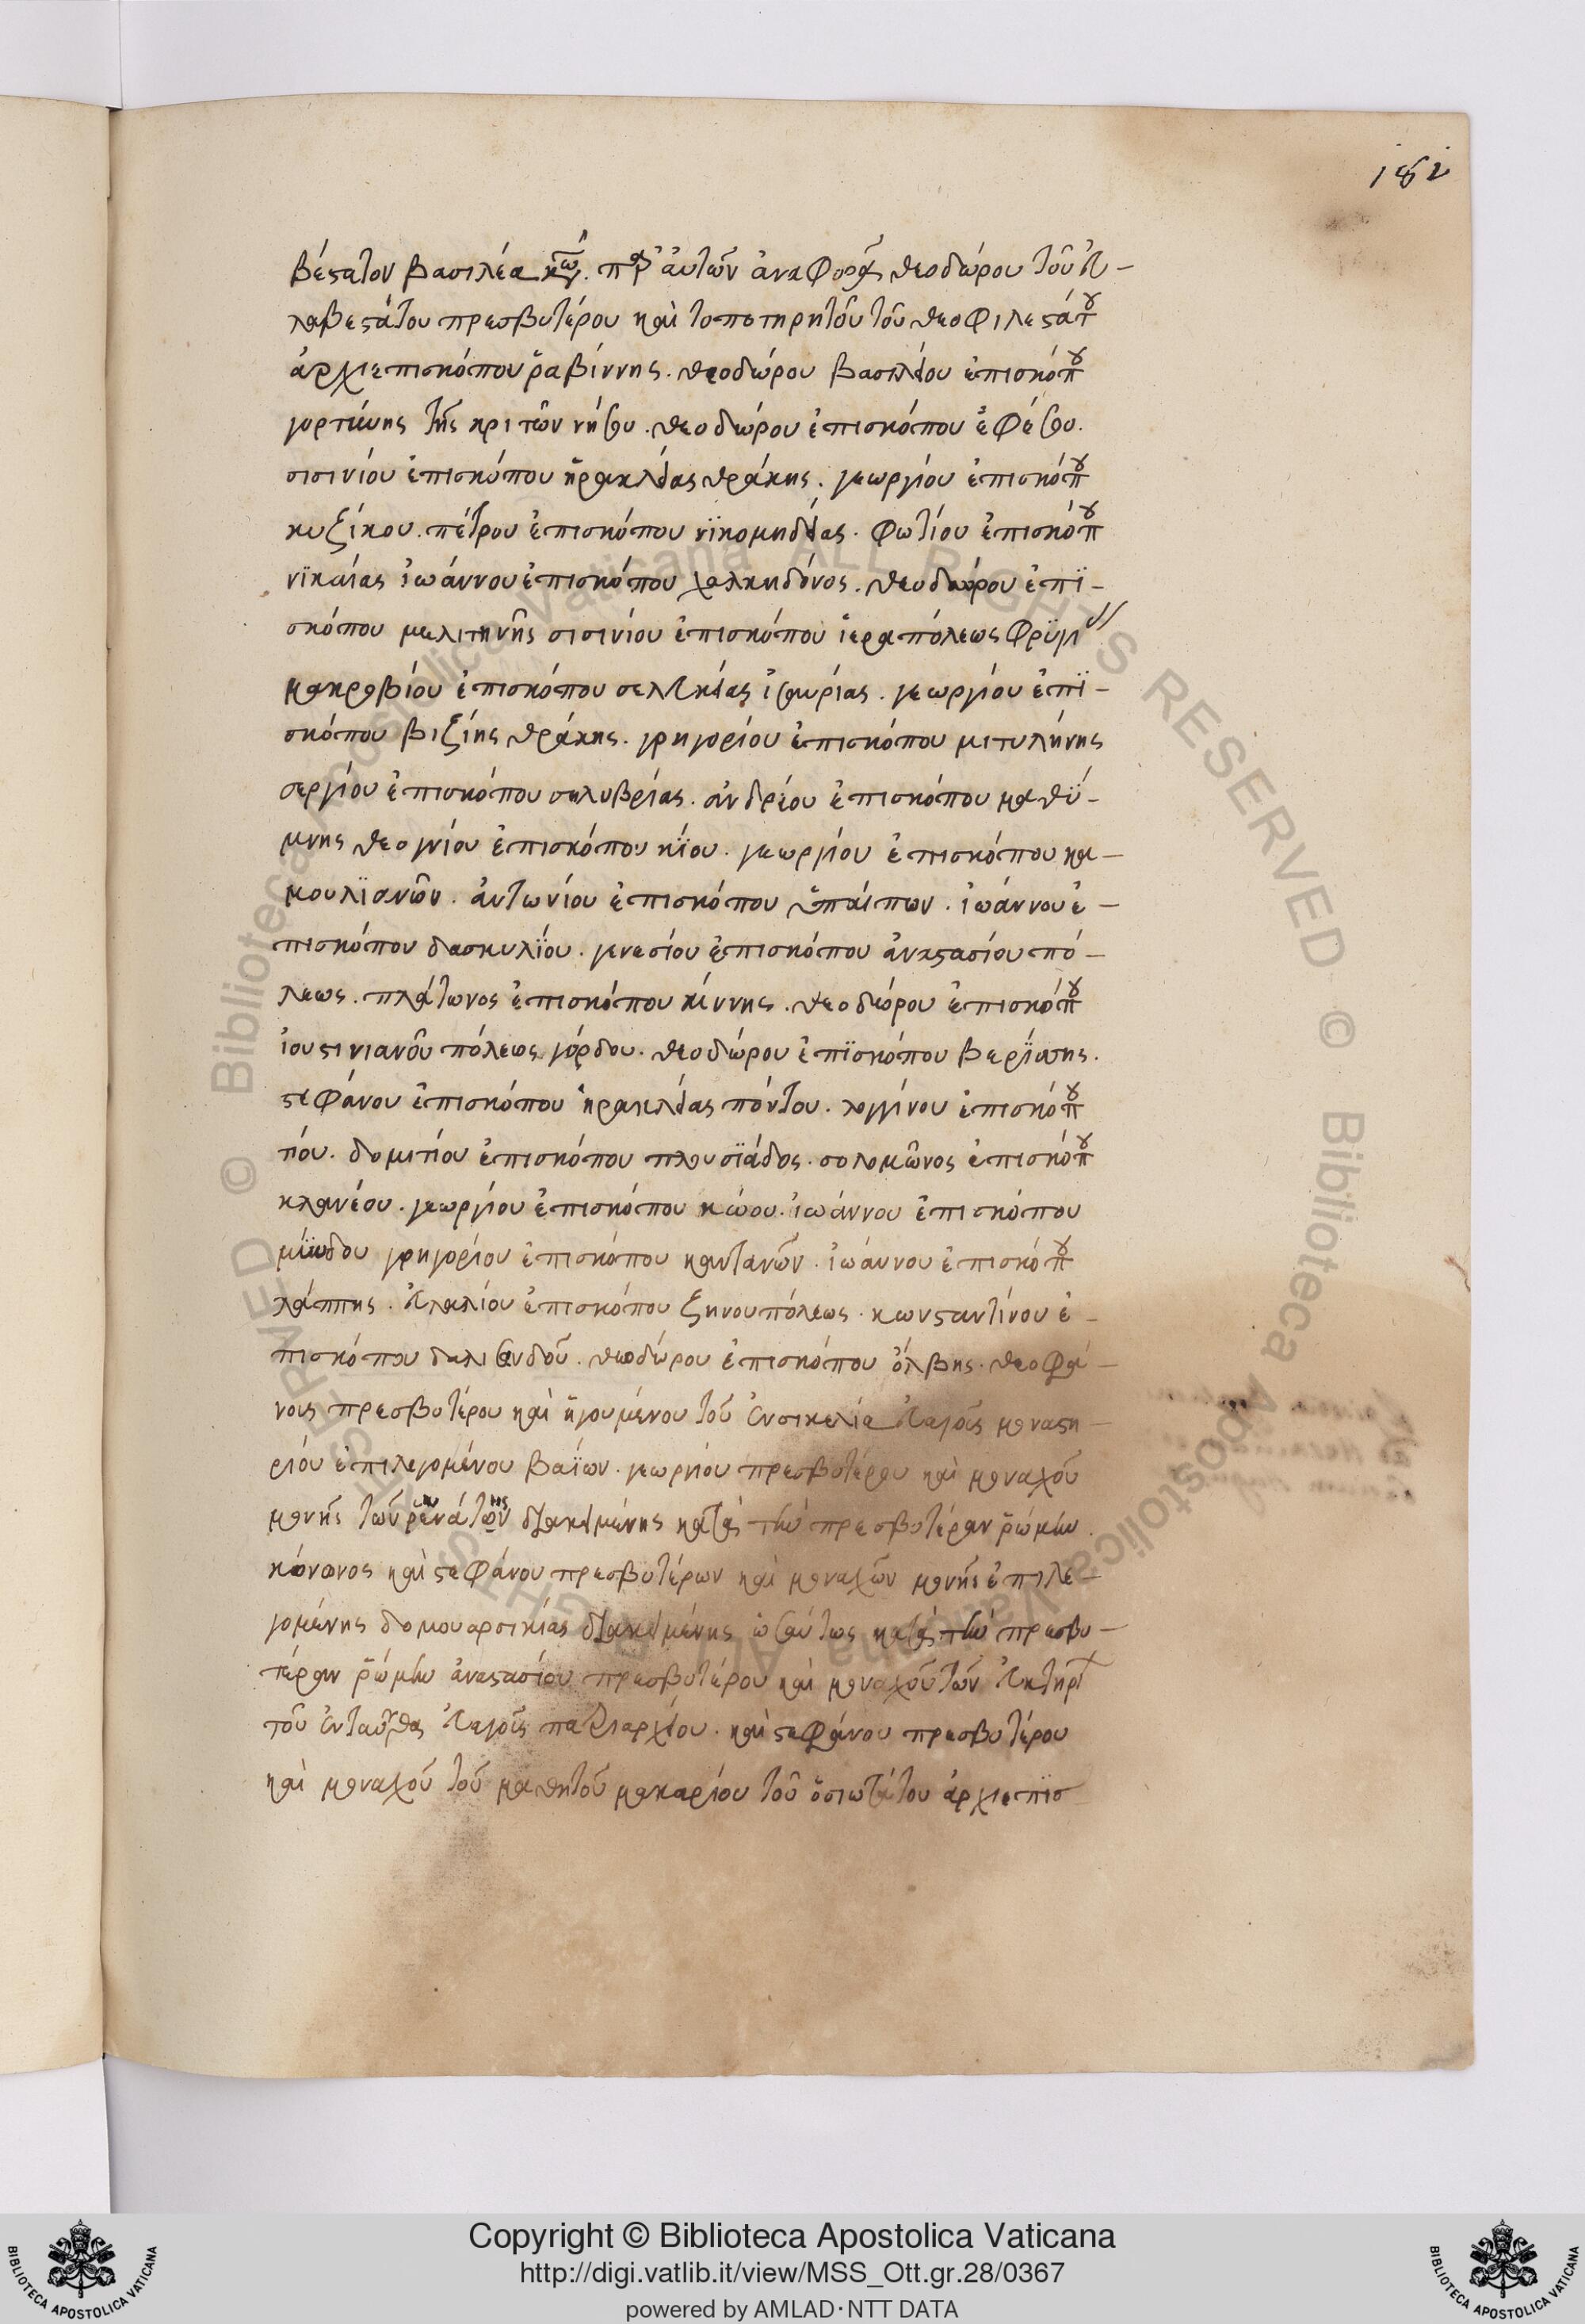 182
βέστατον βασιλέα κων. παρ αὐτῶν ἀναφορᾶς θεοδώρου τοῦ εὐ-
λαβεστάτου πρεσβυτέρου καὶ τοποτηρητοῦ τοῦ θεοφιλεστάτου
ἀρχιεπισκόπου ῥαβίννης. θεοδώρου βασιλείου ἐπισκόπου
γορτύνης τῆς κριτῶν νήσου. θεοδώρου ἐπισκόπου ἐφέσου.
σισινίου ἐπισκόπου ἡρακλείας θράκης. γεωργίου ἐπισκόπου
κυζίκου. πέτρου ἐπισκόπου νϊκομηδείας. φωτίου ἐπισκόπου
νϊκαίας ἰωάννου ἐπισκόπου χαλκηδόνος. θεοδώρου ἐπϊ-
σκόπου μελιτηνῆς σισινίου ἐπισκόπου ἱεραπόλεως φρϋγι
μακροβίου ἐπισκόπου σελευκείας ἰσαυρίας. γεωργίου ἐπϊ-
σκόπου βιζίης θράκης. γρηγορίου ἐπισκόπου μιτυλήνης
σεργίου ἐπισκόπου σηλυβρίας. ἀνδρέου ἐπισκόπου μαθϋ-
μνης θεογνίου ἐπισκόπου κΐου. γεωργίου ἐπισκόπου κα-
μουλϊανῶν. ἀντωνίου ἐπισκόπου ὑπαίπων. ἰωάννου ἐ-
πισκόπου δασκυλΐου. γενεσίου ἐπισκόπου ἀναστασίου πό-
λεως. πλάτωνος ἐπισκόπου κίννης. θεοδώρου ἐπισκόπου
ἰουστινιανοῦ πόλεως γόρδου. θεοδώρου ἐπϊσκόπου βερΐσης.
στεφάνου ἐπισκόπου ἡρακλείας πόντου. λογγίνου ἐπισκόπου
τίου. δομιτίου ἐπισκόπου πλουσϊάδος. σολομῶνος ἐπισκόπου
κλανέου. γεωργίου ἐπισκόπου κώου. ἰωάννου ἐπισκόπου
μΐνδου γρηγορίου ἐπισκόπου καντανῶν. ἰωάννου ἐπισκόπου
λάππης. εὐλαλίου ἐπισκόπου ζηνουπόλεως. κωνσταντίνου ἐ-
πισκόπου δαλισανδοῦ. θεοδώρου ἐπισκόπου ὄλβης. θεοφά-
νους πρεσβυτέρου καὶ ἡγουμένου τοῦ ἐν σικελία εὐαγοῦς μοναστη-
ρίου ἐπιλεγομένου βαΐων. γεωργίου πρεσβυτέρου καὶ μοναχοῦ
μονῆς τῶν ῥενάτων διακειμένης κατὰ τὴν πρεσβυτέραν ῥώμην.
κόνωνος καὶ στεφάνου πρεσβυτέρων καὶ μοναχῶν μονῆς ἐπιλε-
γομένης δομουαρσικίας διακειμένης ὡσαύτως κατὰ τὴν πρεσβυ-
τέραν ῥώμην ἀναστασίου πρεσβυτέρου καὶ μοναχοῦ τῶν εὐκτηρι
τοῦ ἐνταῦθα εὐαγοῦς πατριαρχείου. καὶ στεφάνου πρεσβυτέρου
καὶ μοναχοῦ τοῦ μαθητοῦ μακαρίου τοῦ ὁσιωτάτου ἀρχιεπϊσ
© Biblioteca Apostolica Vaticana ALL RIGHTS RESERVED © Biblioteca Apostolica Vaticana ALL RIGHTS RESERVED
BIBLIOTECA APOSTOLICA VATICANA
Copyright © Biblioteca Apostolica Vaticana
http://digi.vatlib.it/view/MSS_Ott.gr.28/0367
powered by AMLAD·NTT DATA
BIBLIOTECA APOSTOLICA VATICANA